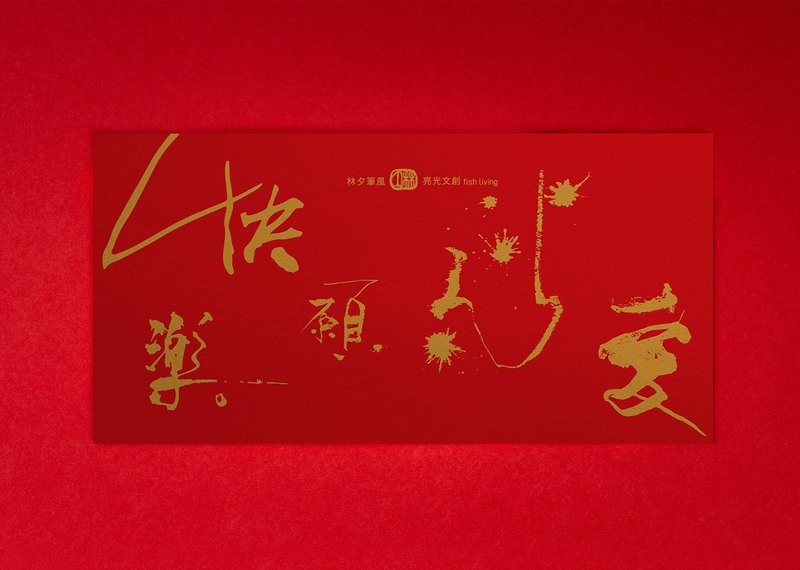 林夕筆風 亮光文創 fish living
快
樂
願
心
愛